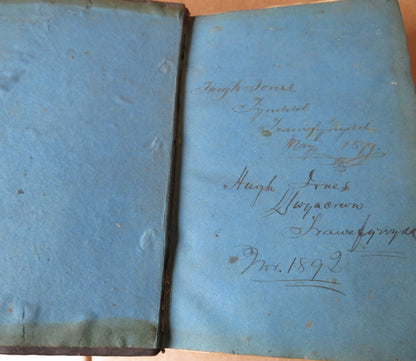 Hugh Jones
Tynddol
Trawsfynydd
May, 1891.
Hugh Jones
Llwyncrwn
Trawsfynydd
Nov. 1892